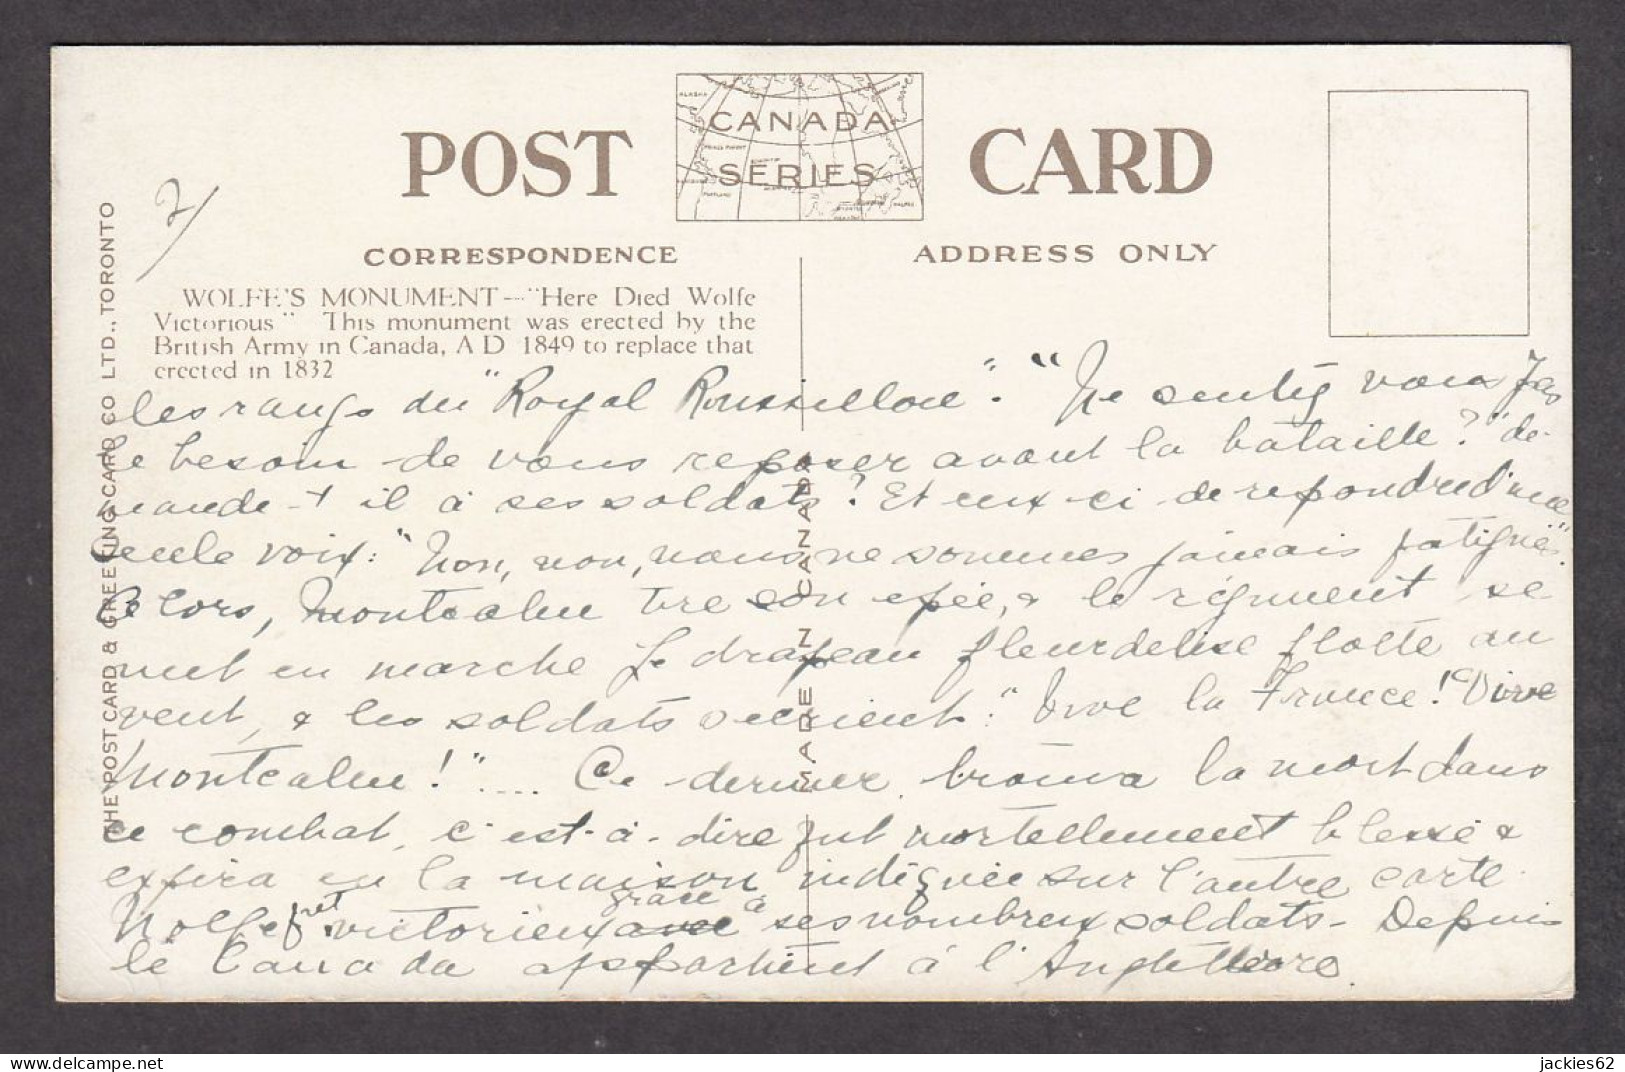 POST CARD
CANADA
SERIES
CORRESPONDENCE
ADDRESS ONLY
2/
WOLFE'S MONUMENT—"Here Died Wolfe
Victorious" This monument was erected by the
British Army in Canada, A D 1849 to replace that
erected in 1832
THE POST CARD & GREETING CARD CO LTD., TORONTO
MADE IN CANADA
les rangs du "Royal Roussillon". "Ne sentez vous pas
le besoin de vous reposer avant la bataille?" de-
mande-t il à ses soldats? Et ceux-ci de repondre d'une
seule voix: "Non, non, nous ne sommes jamais fatigués".
Alors, Montcalm tire son epée, & le régiment se
met en marche Le drapeau fleurdelisé flotte au
vent, & les soldats s'ecrient: "Vive la France! Vive
Montcalm!".... Ce dernier trouva la mort dans
ce combat, c'est-à-dire fut mortellement blessé &
expira en la maison indiquée sur l'autre carte.
Wolfe fut victorieux avec grâce à ses nombreux soldats - Depuis
le Canada appartient à l'Angleterre
jackies62